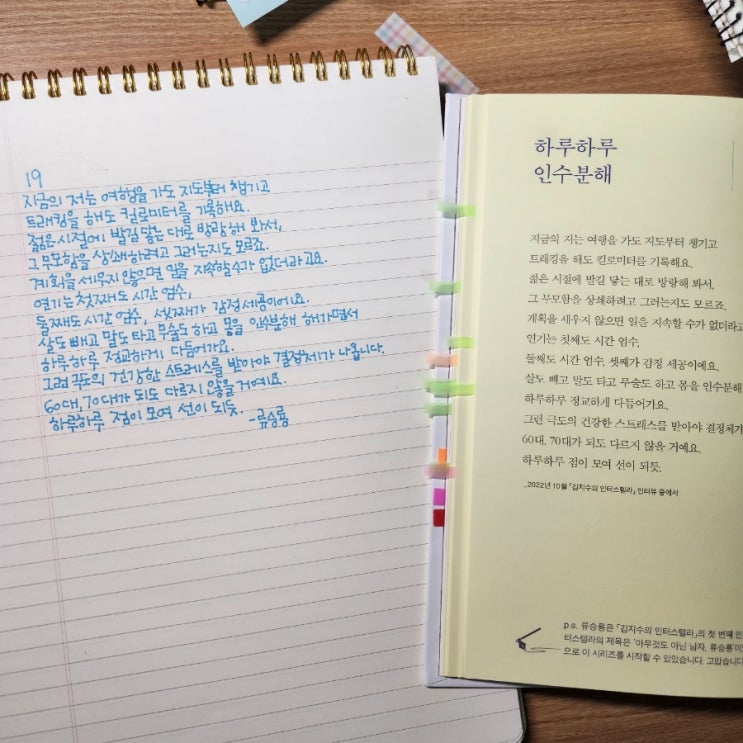 19
지금의 저는 여행을 가도 지도부터 챙기고
트래킹을 해도 킬로미터를 기록해요.
젊은 시절에 발길 닿는 대로 방랑해 봐서,
그 무모함을 상쇄하려고 그러는지도 모르죠.
계획을 세우지 않으면 일을 지속할 수가 없더라고요.
연기는 첫째도 시간 엄수,
둘째도 시간 엄수, 셋째가 감정 세공이에요.
살도 빼고 말도 타고 무술도 하고 몸을 인수분해 해가면서
하루하루 정교하게 다듬어가요.
그런 극도의 건강한 스트레스를 받아야 결정체가 나옵니다.
60대, 70대가 되도 다르지 않을 거예요.
하루하루 점이 모여 선이 되듯.
-류승룡
하루하루
인수분해
지금의 저는 여행을 가도 지도부터 챙기고
트래킹을 해도 킬로미터를 기록해요.
젊은 시절에 발길 닿는 대로 방랑해 봐서,
그 무모함을 상쇄하려고 그러는지도 모르죠.
계획을 세우지 않으면 일을 지속할 수가 없더라고
연기는 첫째도 시간 엄수,
둘째도 시간 엄수, 셋째가 감정 세공이에요.
살도 빼고 말도 타고 무술도 하고 몸을 인수분해
하루하루 정교하게 다듬어가요.
그런 극도의 건강한 스트레스를 받아야 결정체가
60대, 70대가 되도 다르지 않을 거예요.
하루하루 점이 모여 선이 되듯.
_2022년 10월 「김지수의 인터스텔라」 인터뷰 중에서
p.s. 류승룡은 「김지수의 인터스텔라」의 첫 번째 인
터스텔라의 제목은 '아무것도 아닌 남자, 류승룡'이
으로 이 시리즈를 시작할 수 있었습니다. 고맙습니다